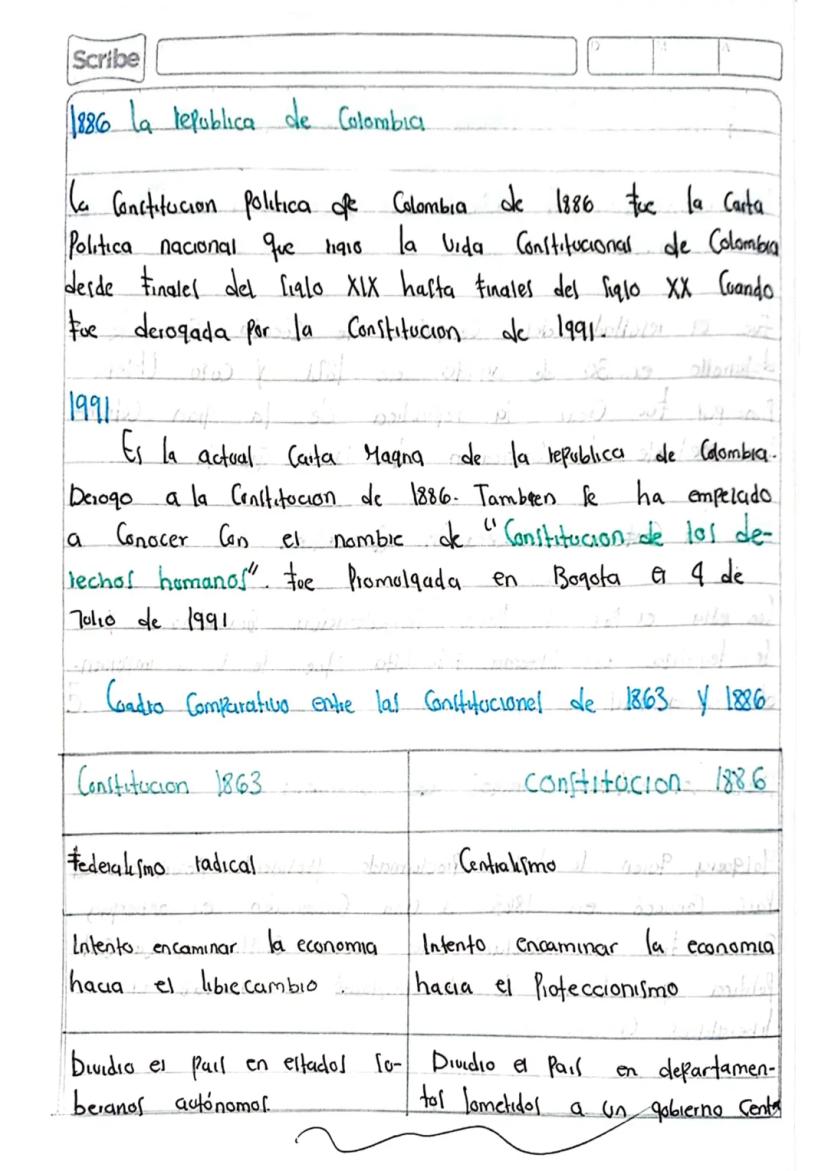 Scribe
D M A
1886 la republica de Colombia
La Constitucion Politica de Colombia de 1886 fue la Carta
Politica nacional que rigio la vida Constitucional de Colombia
desde finales del siglo XIX hasta finales del siglo XX Cuando
fue derogada por la Constitucion de 1991.
1991
Es la actual Carta Magna de la republica de Colombia.
Derogo a la Constitucion de 1886. Tambien se ha empezado
a Conocer Con el nombre de "Constitucion de los de-
rechos humanos". fue Promulgada en Bogota el 4 de
Julio de 1991
Cuadro Comparativo entre las Constituciones de 1863 y 1886
Constitucion 1863
Constitucion 1886
Federalismo radical
Centralismo
Intento encaminar la economia
hacia el librecambio.
Intento encaminar la economia
hacia el Proteccionismo
Dividio el pais en estados so-
beranos autónomos.
Dividio el Pais en departamen-
tos sometidos a un gobierno Cent